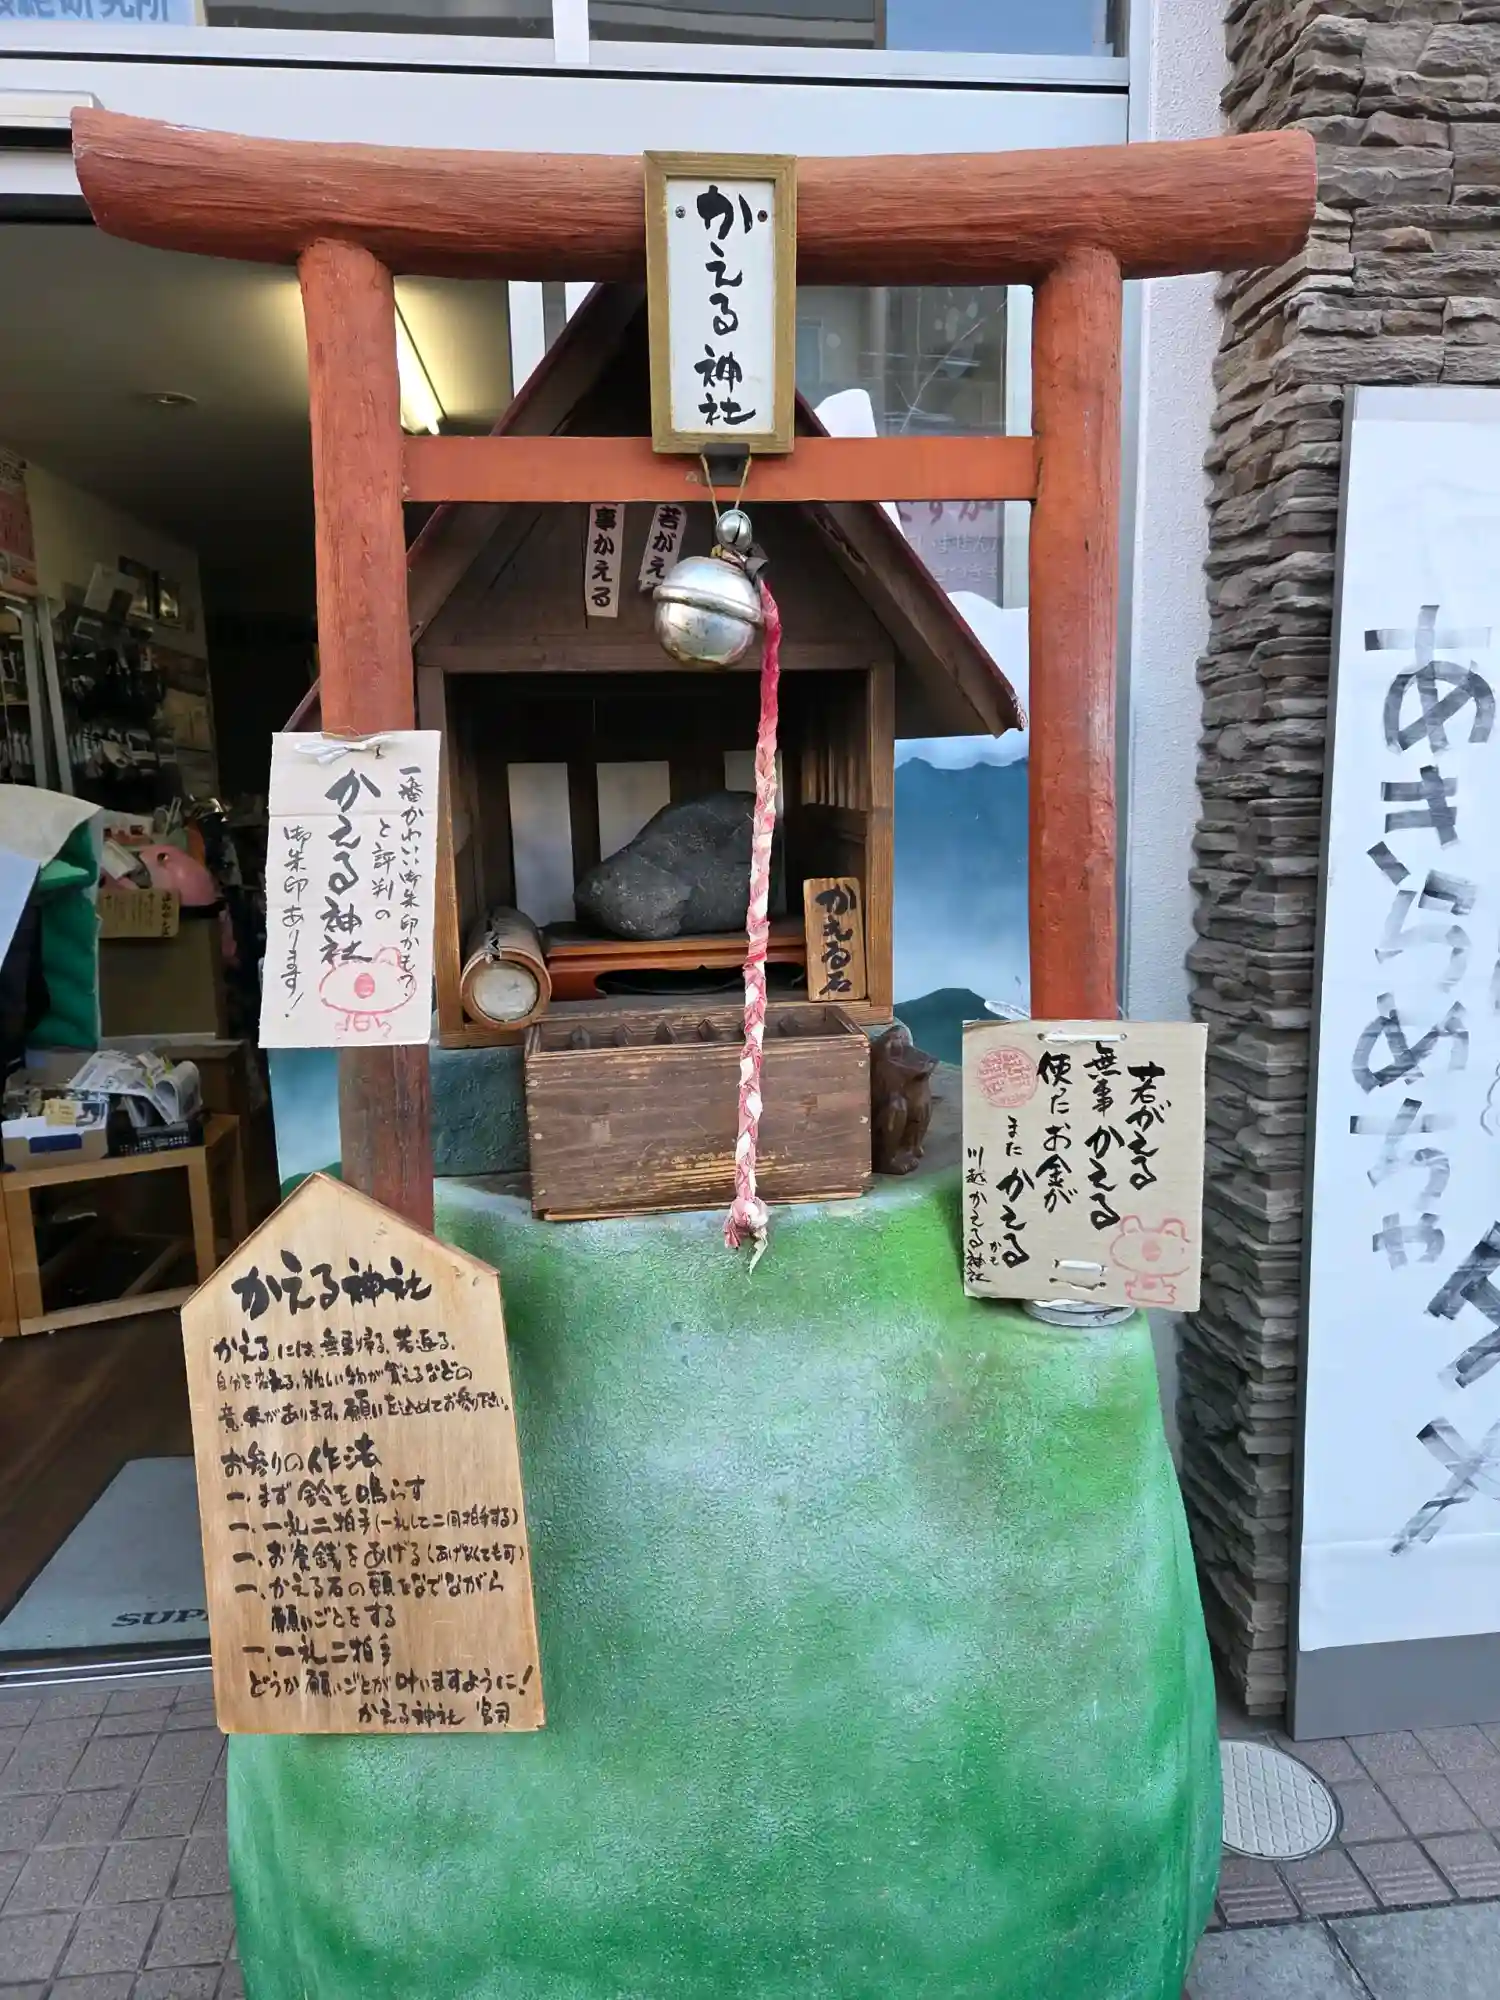 かえる神社
事かえる
若がえ
一番かわいい御朱印かも?
と評判の
かえる神社
御朱印あります!
かえる石
若がえる
無事かえる
使ったお金が
また かえる
かも
川越かえる神社
かえる神社
「かえる」には、無事帰る、若返る、
自分を変える、欲しい物が買えるなどの
意味があります。願いを込めてお参り下さい。
お参りの作法
一、まず鈴を鳴らす
一、一礼二拍手(一礼して二回拍手する)
一、お賽銭をあげる(あげなくても可)
一、かえる石の頭をなでながら
願いごとをする
一、一礼二拍手
どうか願いごとが叶いますように!
かえる神社 宮司
SUP
あきらめちゃ
ダメ